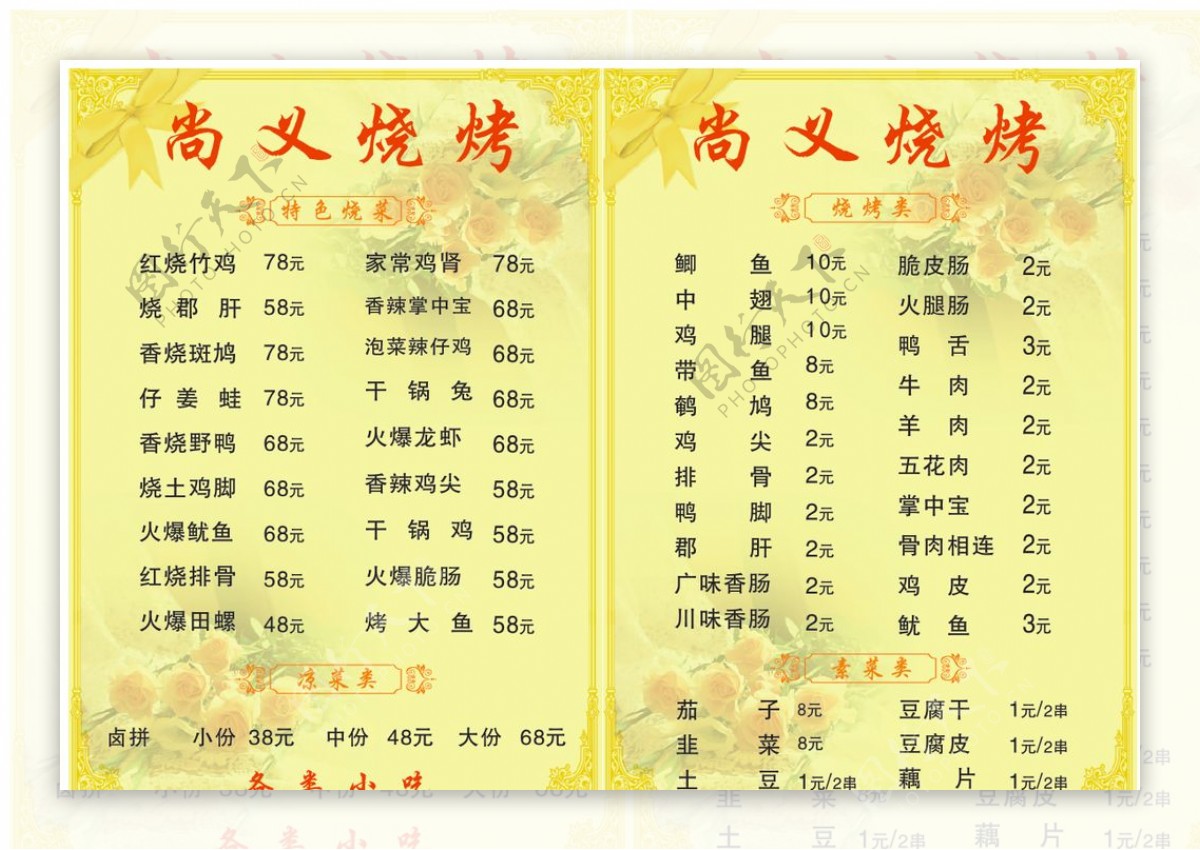 尚义烧烤
特色烧菜
红烧竹鸡 78元 家常鸡肾 78元
烧郡肝 58元 香辣掌中宝 68元
香烧斑鸠 78元 泡菜辣仔鸡 68元
仔姜蛙 78元 干锅兔 68元
香烧野鸭 68元 火爆龙虾 68元
烧土鸡脚 68元 香辣鸡尖 58元
火爆鱿鱼 68元 干锅鸡 58元
红烧排骨 58元 火爆脆肠 58元
火爆田螺 48元 烤大鱼 58元
凉菜类
卤拼 小份 38元 中份 48元 大份 68元
各类小吃
尚义烧烤
烧烤类
鲫鱼 10元 脆皮肠 2元
中翅 10元 火腿肠 2元
鸡腿 10元 鸭舌 3元
带鱼 8元 牛肉 2元
鹌鸠 8元 羊肉 2元
鸡尖 2元 五花肉 2元
排骨 2元 掌中宝 2元
鸭脚 2元 骨肉相连 2元
郡肝 2元 鸡皮 2元
广味香肠 2元 鱿鱼 3元
川味香肠 2元
素菜类
茄子 8元 豆腐干 1元/2串
韭菜 8元 豆腐皮 1元/2串
土豆 1元/2串 藕片 1元/2串
图行天下
PHOTOPHOTO.CN
图行天下
PHOTOPHOTO.CN